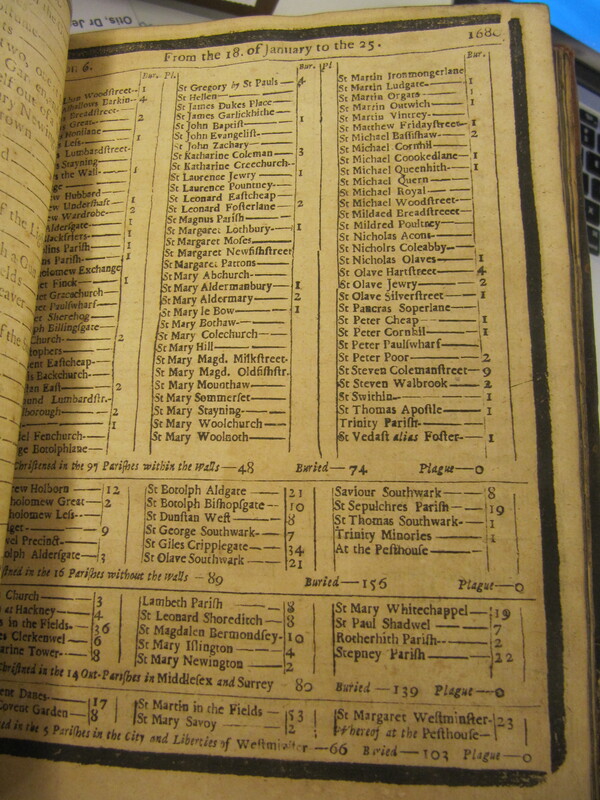 Otis, Dr Je
From the 18. of January to the 25. 168
Bur. Pl. Bur. Pl. Bur.
Woodstreet— 1
Barkin— 4
Breadstreet—
Great— 2
Leſs— 1
Lumbardstreet—
Stayning
n the Wall— 1
Hubbard
Underſhaft— 1
w Wardrobe— 2
Alderſgate— 1
Blackfriers— 1
Pariſh— 1
s Pariſh— 1
olomew Exchange
t Finck— 1
Gracechurch
Paulſwharf—
Sherehog
ph Billingſgate
Church— 2
tophers—
ent Eaſtcheap—
s Backchurch
an Eaſt— 2
und Lumbardſtr.
borough— 2
1
el Fenchurch—
ge Botolphlane— 1
St Gregory by St Pauls— 4
St Hellen
St James Dukes Place—
St James Garlickhithe
St John Baptiſt— 1
St John Evangeliſt—
St John Zachary
St Katharine Coleman— 3
St Katharine Creechurch—
St Laurence Jewry— 1
St Laurence Pountney—
St Leonard Eaſtcheap
St Leonard Foſterlane— 2
St Magnus Pariſh
St Margaret Lothbury— 1
St Margaret Moſes—
St Margaret Newfiſhſtreet
St Margaret Pattons—
St Mary Abchurch—
St Mary Aldermanbury 1
St Mary Aldermary— 2
St Mary le Bow— 1
St Mary Bothaw—
St Mary Colechurch—
St Mary Hill—
St Mary Magd. Milkſtreet-
St Mary Magd. Oldfiſhſtr.
St Mary Mounthaw—
St Mary Sommerſet—
St Mary Stayning—
St Mary Woolchurch—
St Mary Woolnoth—
St Martin Ironmongerlane
St Martin Ludgate— 1
St Martin Orgars—
St Martin Outwich— 1
St Martin Vintrey—
St Matthew Fridayſtreet— 1
St Michael Baſſiſhaw— 2
St Michael Cornhil
St Michael Coookedlane— 1
St Michael Queenhith— 1
St Michael Quern
St Michael Royal
St Michael Woodſtreet—
St Mildred Breadſtreeet
St Mildred Poultney—
St Nicholas Acons—
St Nicholas Coleabby—
St Nicholas Olaves— 1
St Olave Hartſtreet— 4
St Olave Jewry— 2
St Olave Silverſtreet— 1
St Pancras Soperlane
St Peter Cheap— 1
St Peter Cornhil— 1
St Peter Paulſwharf—
St Peter Poor— 2
St Steven Colemanſtreet— 9
St Steven Walbrook— 2
St Swithin— 1
St Thomas Apoſtle— 1
Trinity Pariſh—
St Vedaſt alias Foſter— 1
Chriſtened in the 97 Pariſhes within the Walls—48 Buried—74 Plague—0
rew Holborn—12
holomew Great—2
holomew Leſs—
get—9
vel Precinct—
olph Alderſgate—3
St Botolph Aldgate—21
St Botolph Biſhopſgate—10
St Dunſtan Weſt—8
St George Southwark—7
St Giles Cripplegate—34
St Olave Southwark—21
Saviour Southwark—8
St Sepulchres Pariſh—19
St Thomas Southwark—1
Trinity Minories—1
At the Peſthouſe—
ſtned in the 16 Pariſhes without the Walls—89 Buried—156 Plague—0
Church—3
at Hackney—4
s in the Fields—36
es Clerkenwel—6
arine Tower—8
Lambeth Pariſh—8
St Leonard Shoreditch—8
St Magdalen Bermondſey—10
St Mary Iſlington—4
St Mary Newington—2
St Mary Whitechappel—19
St Paul Shadwel—7
Rotherhith Pariſh—2
Stepney Pariſh—22
Chriſtened in the 14 Out-Pariſhes in Middleſex and Surrey—80 Buried—139 Plague—0
ent Danes—17
Covent Garden—8
St Martin in the Fields—53
St Mary Savoy—2
St Margaret Weſtminſter—23
Whereof at the Peſthouſe—
ed in the 5 Pariſhes in the City and Liberties of Weſtminſter—66 Buried—103 Plague—0